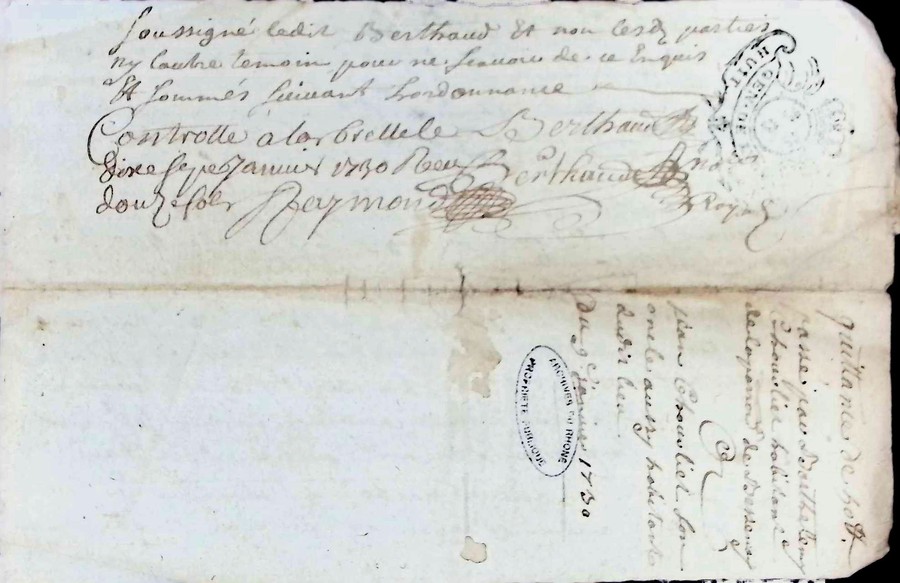 soussigné ledit Berthaud Et non lesd parties
ny lautre temoin pour ne scavoir de ce Enquis
Et sommés suivant Lordonnance
Controllé a la brelle le Berthaud
Dixe sept Janvier 1730 Reçu Berthaud no
douze sols Raymond Royal
HUIT
GENE
quittance de 40
passé par Barthelemy
habitant
de Bessenay
jean son
oncle aussy habitant
dudit lieu
du 9e Janvier 1730
ARCHIVES DU RHONE
PROPRIETE PUBLIQUE